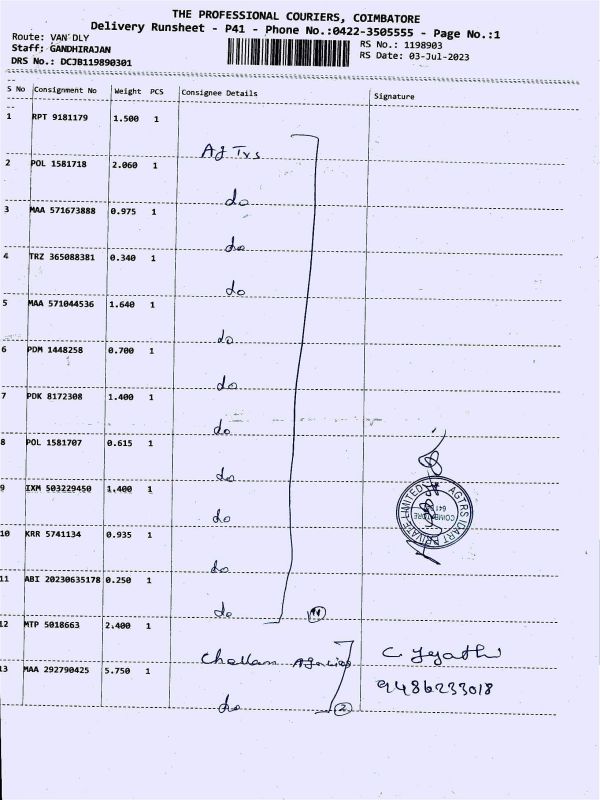 THE PROFESSIONAL COURIERS, COIMBATORE
Delivery Runsheet - P41 - Phone No.:0422-3505555 - Page No.:1
Route: VAN DLY
RS No.: 1198903
Staff: GANDHIRAJAN
RS Date: 03-Jul-2023
DRS No.: DCJB119890301
S No Consignment No Weight PCS Consignee Details Signature
1 RPT 9181179 1.500 1
Ag Tvs
2 POL 1581718 2.060 1
do
3 MAA 571673888 0.975 1
do
4 TRZ 365088381 0.340 1
do
5 MAA 571044536 1.640 1
do
6 PDM 1448258 0.700 1
do
7 PDK 8172308 1.400 1
do
8 POL 1581707 0.615 1
do
9 IXM 503229450 1.400 1
do
10 KRR 5741134 0.935 1
do
11 ABI 20230635178 0.250 1
do 11
12 MTP 5018663 2.400 1
Chellam Agencies
13 MAA 292790425 5.750 1
do 2
AGTRS (DART PRIVATE LIMITED
COIMBATORE
9486233018